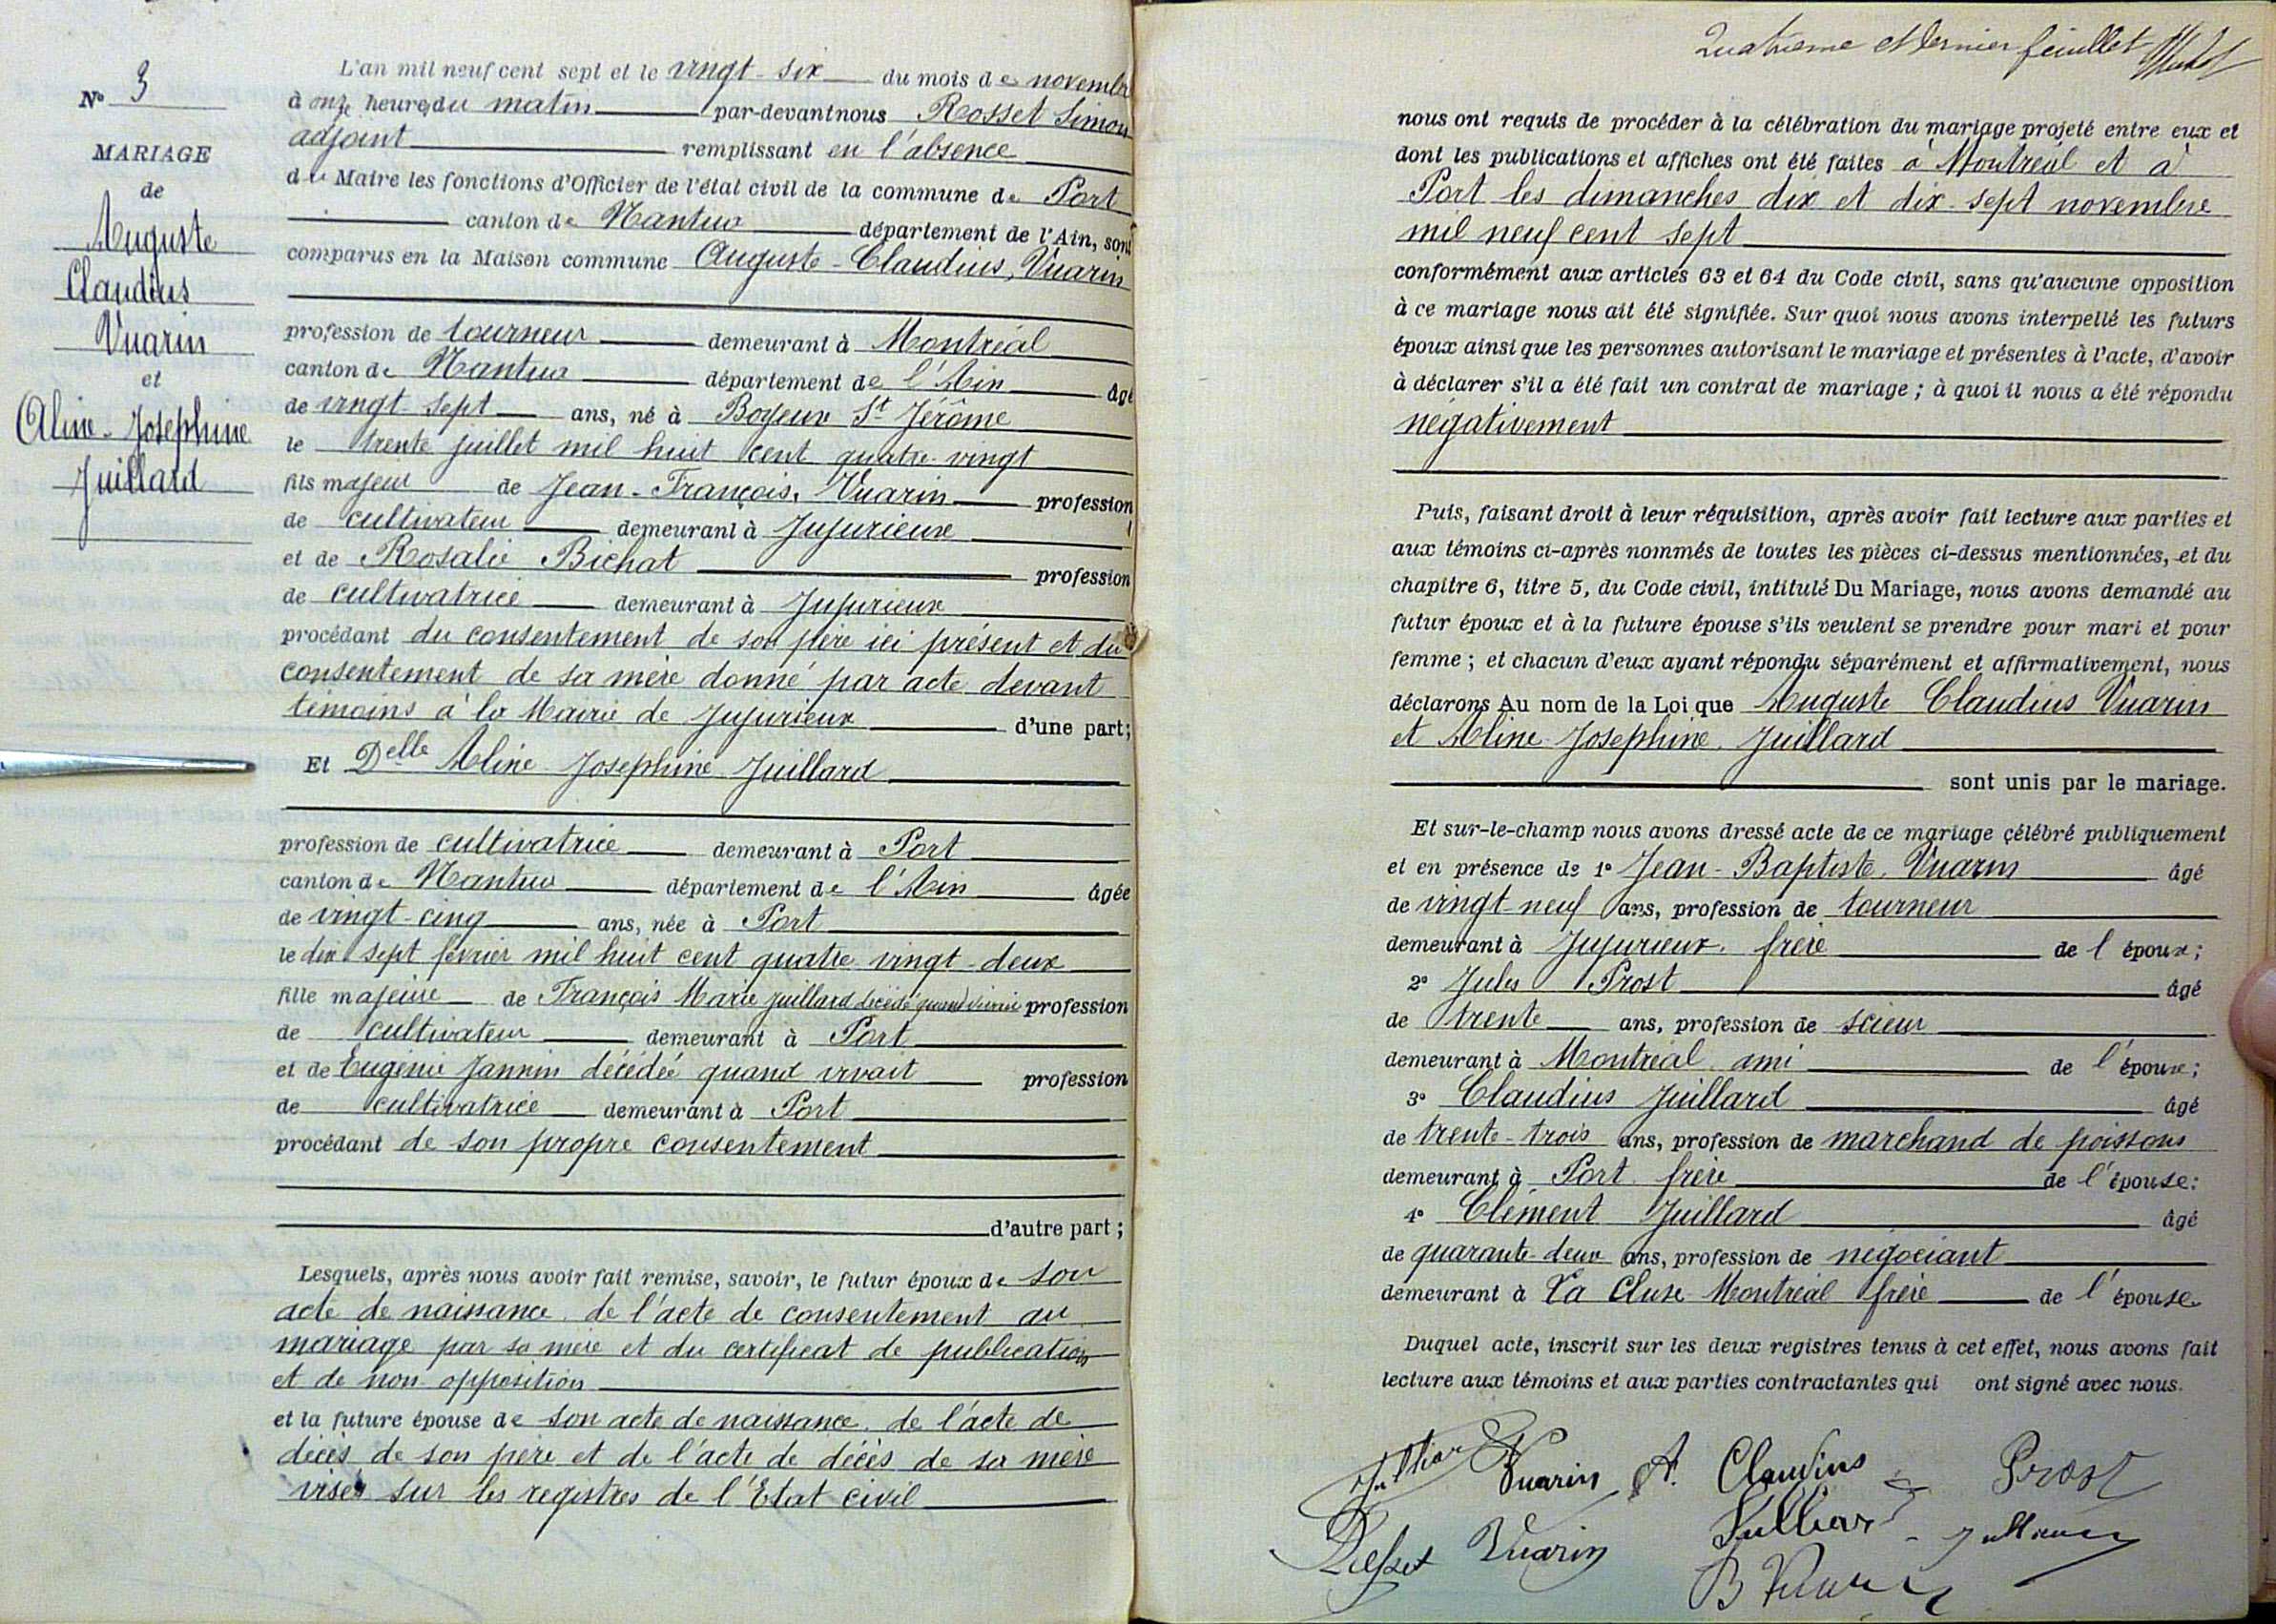 N° 3
MARIAGE
de
Auguste
Claudius
Vuarin
et
Aline-Josephine
Juillard
L'an mil neuf cent sept et le vingt-six du mois de novembre
à onze heures du matin par-devant nous Rosset Simon
adjoint remplissant en l'absence
du Maire les fonctions d'Officier de l'état civil de la commune de Port
canton de Nantua département de l'Ain, sont
comparus en la Maison commune Auguste-Claudius, Vuarin
profession de tourneur demeurant à Montréal
canton de Nantua département de l'Ain âgé
de vingt-sept ans, né à Boyeux St Jérôme
le trente juillet mil huit cent quatre-vingt
fils majeur de Jean-François, Vuarin profession
de cultivateur demeurant à Jujurieux
et de Rosalie Bichat profession
de cultivatrice demeurant à Jujurieux
procédant du consentement de son père ici présent et du
consentement de sa mère donné par acte devant
témoins à la Mairie de Jujurieux d'une part;
Et Delle Aline-Josephine Juillard
profession de cultivatrice demeurant à Port
canton de Nantua département de l'Ain âgée
de vingt-cinq ans, née à Port
le dix sept février mil huit cent quatre vingt-deux
fille majeure de François Marie Juillard décédé quand vivait profession
de cultivateur demeurant à Port
et de Eugénie Jannin décédée quand vivait profession
de cultivatrice demeurant à Port
procédant de son propre consentement
d'autre part;
Lesquels, après nous avoir fait remise, savoir, le futur époux de son
acte de naissance, de l'acte de consentement au
mariage par sa mère et du certificat de publication
et de non opposition
et la future épouse de son acte de naissance, de l'acte de
décès de son père et de l'acte de décès de sa mère
visés sur les registres de l'Etat civil
Quatrième et dernier feuillet
nous ont requis de procéder à la célébration du mariage projeté entre eux et
dont les publications et affiches ont été faites à Montréal et à
Port les dimanches dix et dix-sept novembre
mil neuf cent sept
conformément aux articles 63 et 64 du Code civil, sans qu'aucune opposition
à ce mariage nous ait été signifiée. Sur quoi nous avons interpellé les futurs
époux ainsi que les personnes autorisant le mariage et présentes à l'acte, d'avoir
à déclarer s'il a été fait un contrat de mariage; à quoi il nous a été répondu
négativement
Puis, faisant droit à leur réquisition, après avoir fait lecture aux parties et
aux témoins ci-après nommés de toutes les pièces ci-dessus mentionnées, et du
chapitre 6, titre 5, du Code civil, intitulé Du Mariage, nous avons demandé au
futur époux et à la future épouse s'ils veulent se prendre pour mari et pour
femme; et chacun d'eux ayant répondu séparément et affirmativement, nous
déclarons Au nom de la Loi que Auguste Claudius Vuarin
et Aline-Josephine Juillard
sont unis par le mariage.
Et sur-le-champ nous avons dressé acte de ce mariage célébré publiquement
et en présence de 1° Jean-Baptiste, Vuarin âgé
de vingt-neuf ans, profession de tourneur
demeurant à Jujurieux, frère de l époux;
2° Jules Prost âgé
de trente ans, profession de scieur
demeurant à Montréal ami de l'époux;
3° Claudius Juillard âgé
de trente-trois ans, profession de marchand de poissons
demeurant à Port frère de l'épouse:
4° Clément Juillard âgé
de quarante-deux ans, profession de négociant
demeurant à La Cluse Montréal frère de l'épouse
Duquel acte, inscrit sur les deux registres tenus à cet effet, nous avons fait
lecture aux témoins et aux parties contractantes qui ont signé avec nous.
Vuarin A. Claudius Prost
Vuarin